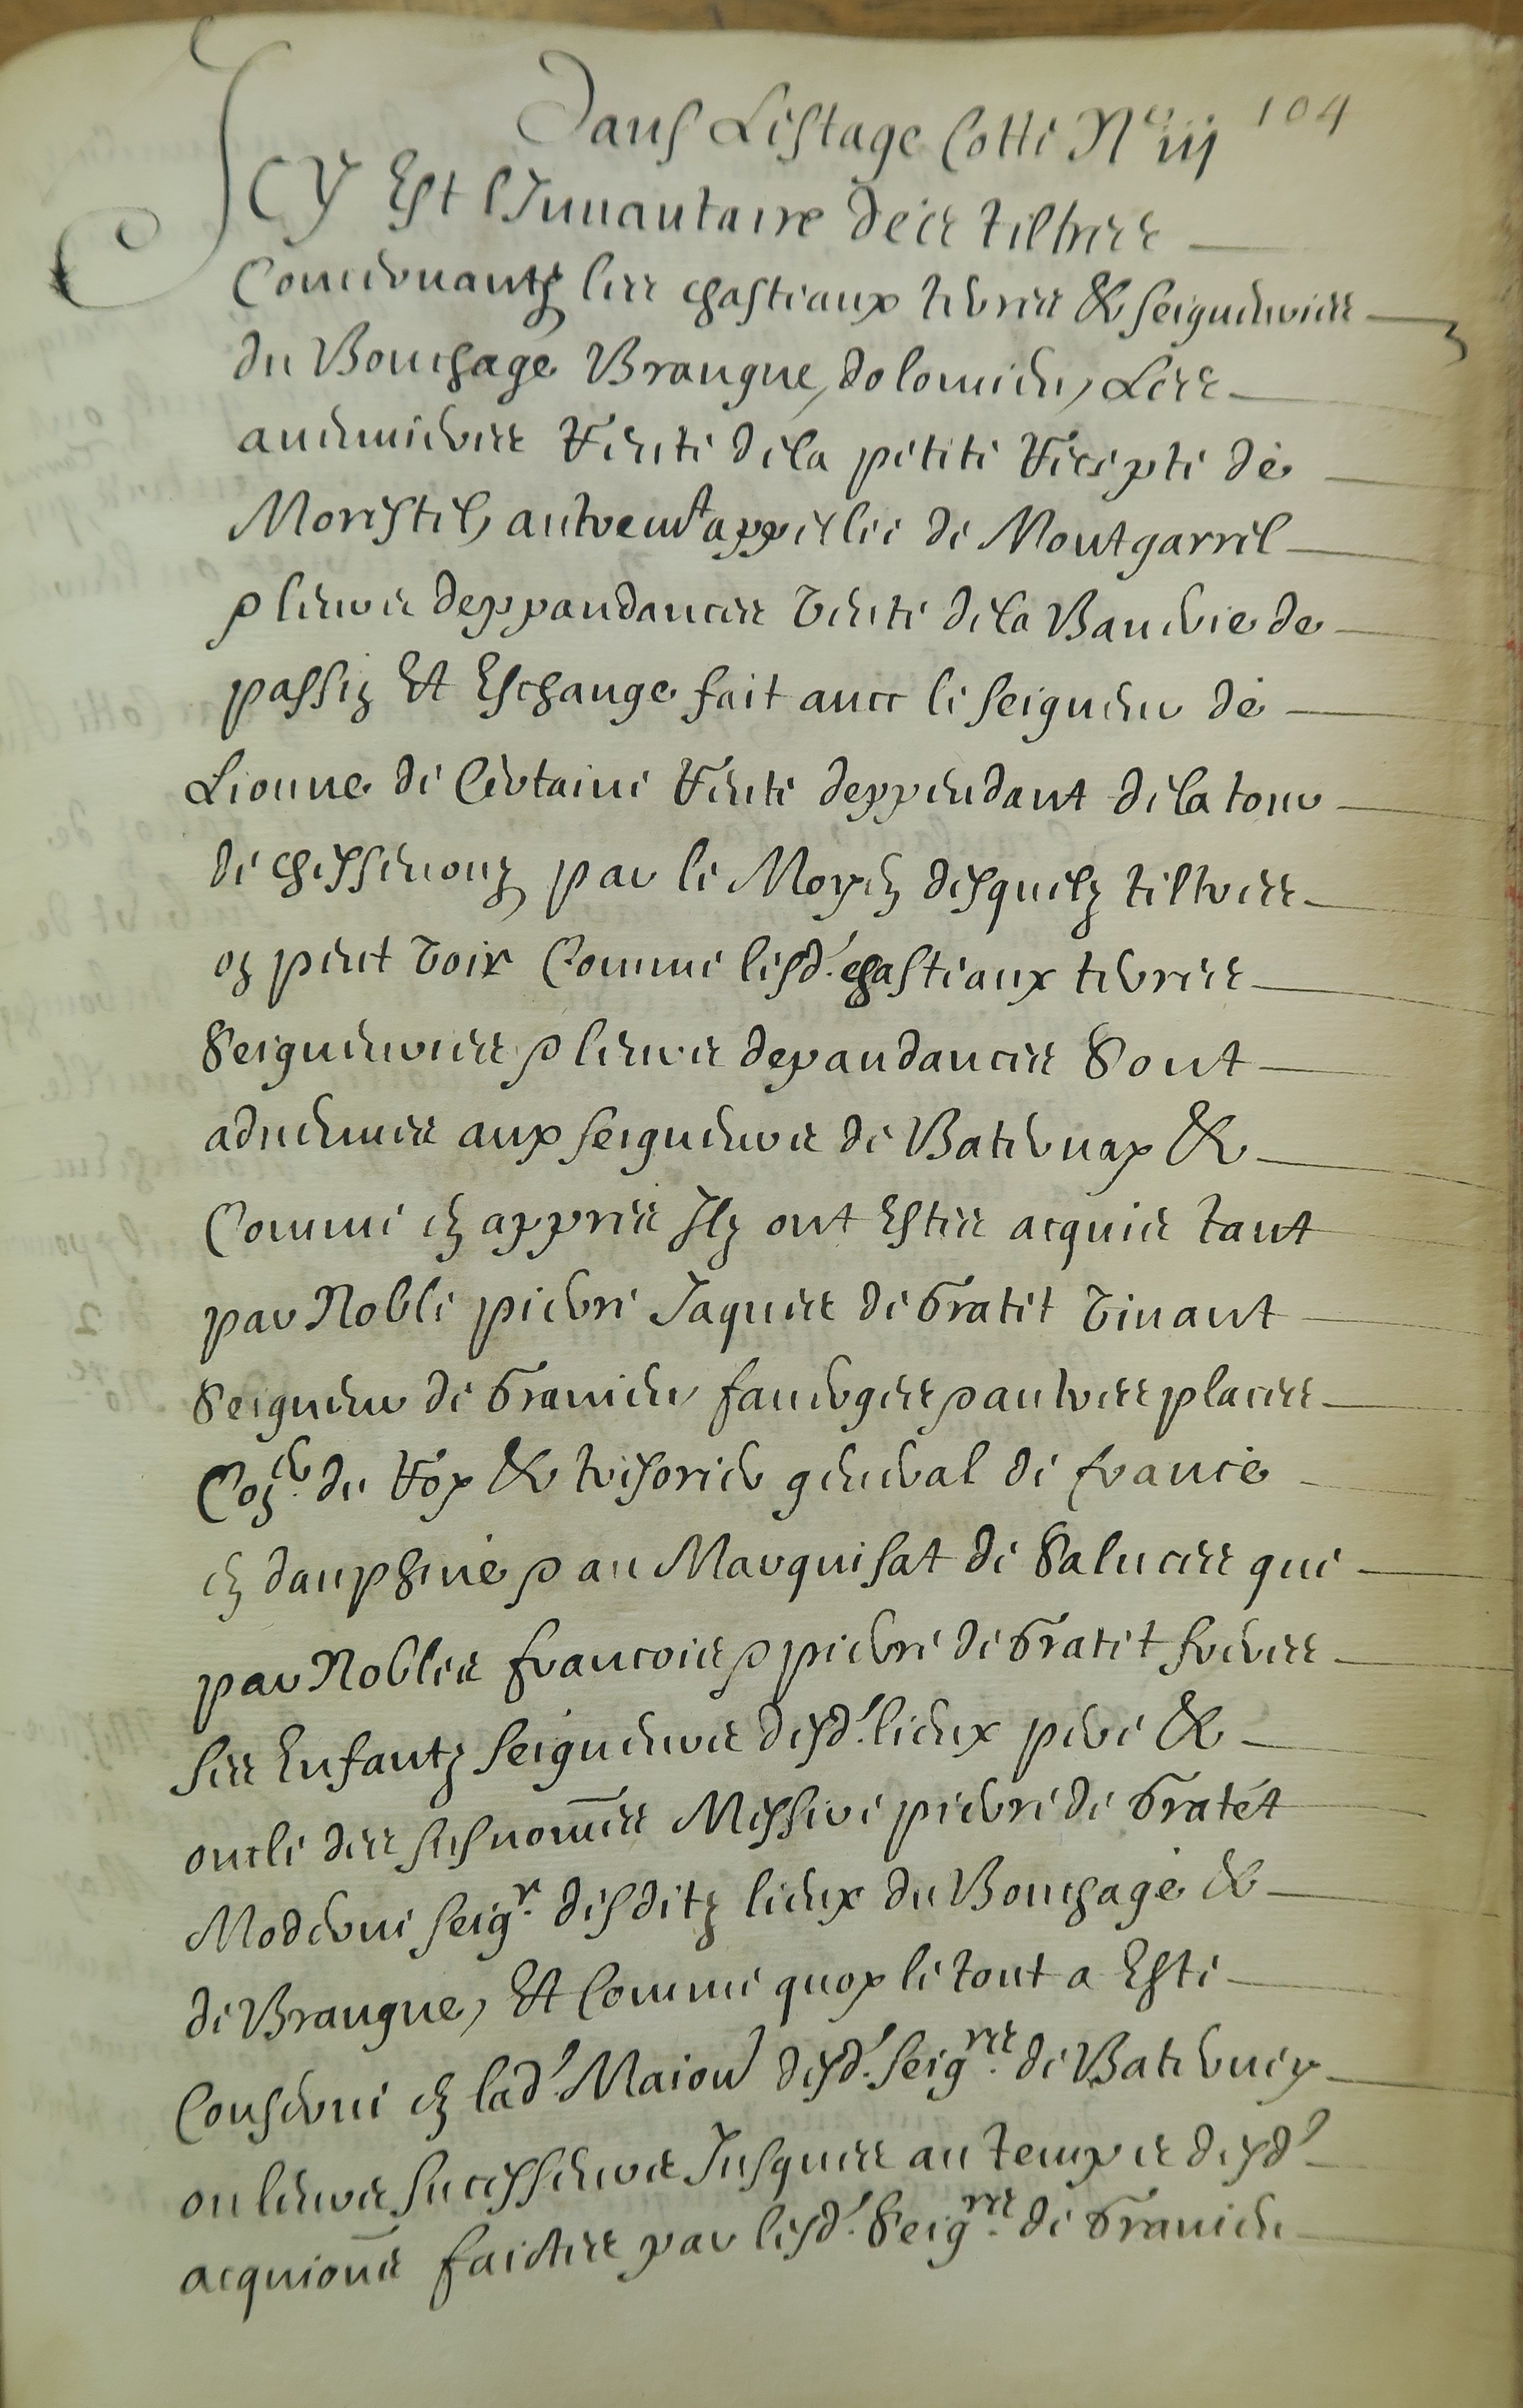 Dans Lestage Cotté N° iij 104
Icy Est l'Inuantaire des tiltres
Concernantz les chasteaux terres & seigneuries
du Bouchage Brangue, dolomieu, Les
audeuieres Rente de la petite Recepte de
Morestel, autremt appellée de Montgarrel
& leurs deppandances Vente de la Baucrie de
passin Et Eschange fait auec le seigneur de
Lionne de Certaine Rente deppendant de la tour
de chessenoux par le Moyen desquelz tiltres
on peut Voir Comme lesd. chasteaux terres
Seigneuries & leurs depandances Sont
aduenues aux seigneurs de Baternay &
Comme en appres Ilz ont Estes acquis tant
par Noble pierre Jaques de Gratet Viuant
Seigneur de Granieu fauerges & autres places
Coner. du Roy & tresorier general de france
en dauphiné & au Marquisat de Saluces que
par Nobles francois & pierre de Gratet freres
ses Enfantz seigneurs desd. lieux pere &
oncle des susnom̄es Messire pierre de Gratet
Moderne seigr. desditz lieux du Bouchage &
de Brangue, Et Comme quoy le tout a Esté
Conserué en lad. Maion desd. seigrs. de Baterney
ou leurs successeurs Jusques au temps desd.
acquions faictes par lesd. Seigrs. de Granieu